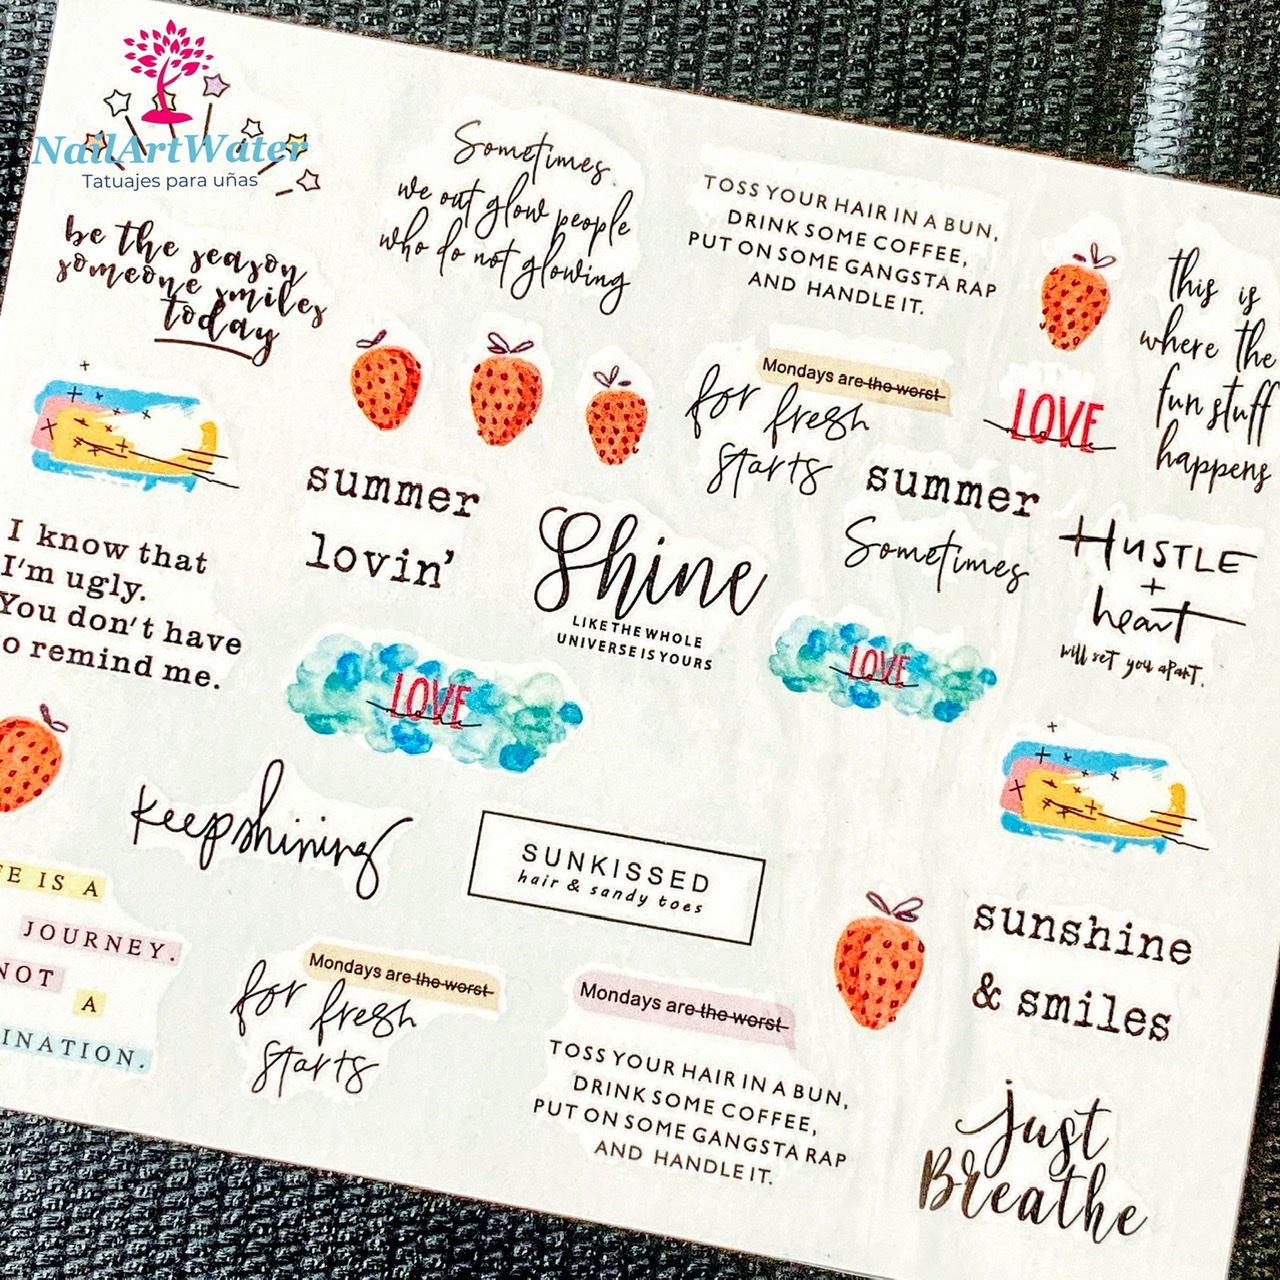 NailArtWater
Tatuajes para uñas
be the season
someone smiles
today
Sometimes
we out glow people
who do not glowing
TOSS YOUR HAIR IN A BUN,
DRINK SOME COFFEE,
PUT ON SOME GANGSTA RAP
AND HANDLE IT.
this is
where the
fun stuff
happens
Mondays are the worst
for fresh
starts
LOVE
summer
lovin'
summer
Sometimes
Shine
LIKE THE WHOLE
UNIVERSE IS YOURS
HUSTLE
+
heart
will set you apart.
I know that
I'm ugly.
You don't have
o remind me.
LOVE
LOVE
keep shining
SUNKISSED
hair & sandy toes
FE IS A
JOURNEY.
NOT
A
INATION.
Mondays are the worst
for fresh
starts
Mondays are the worst
TOSS YOUR HAIR IN A BUN,
DRINK SOME COFFEE,
PUT ON SOME GANGSTA RAP
AND HANDLE IT.
sunshine
& smiles
just
Breathe